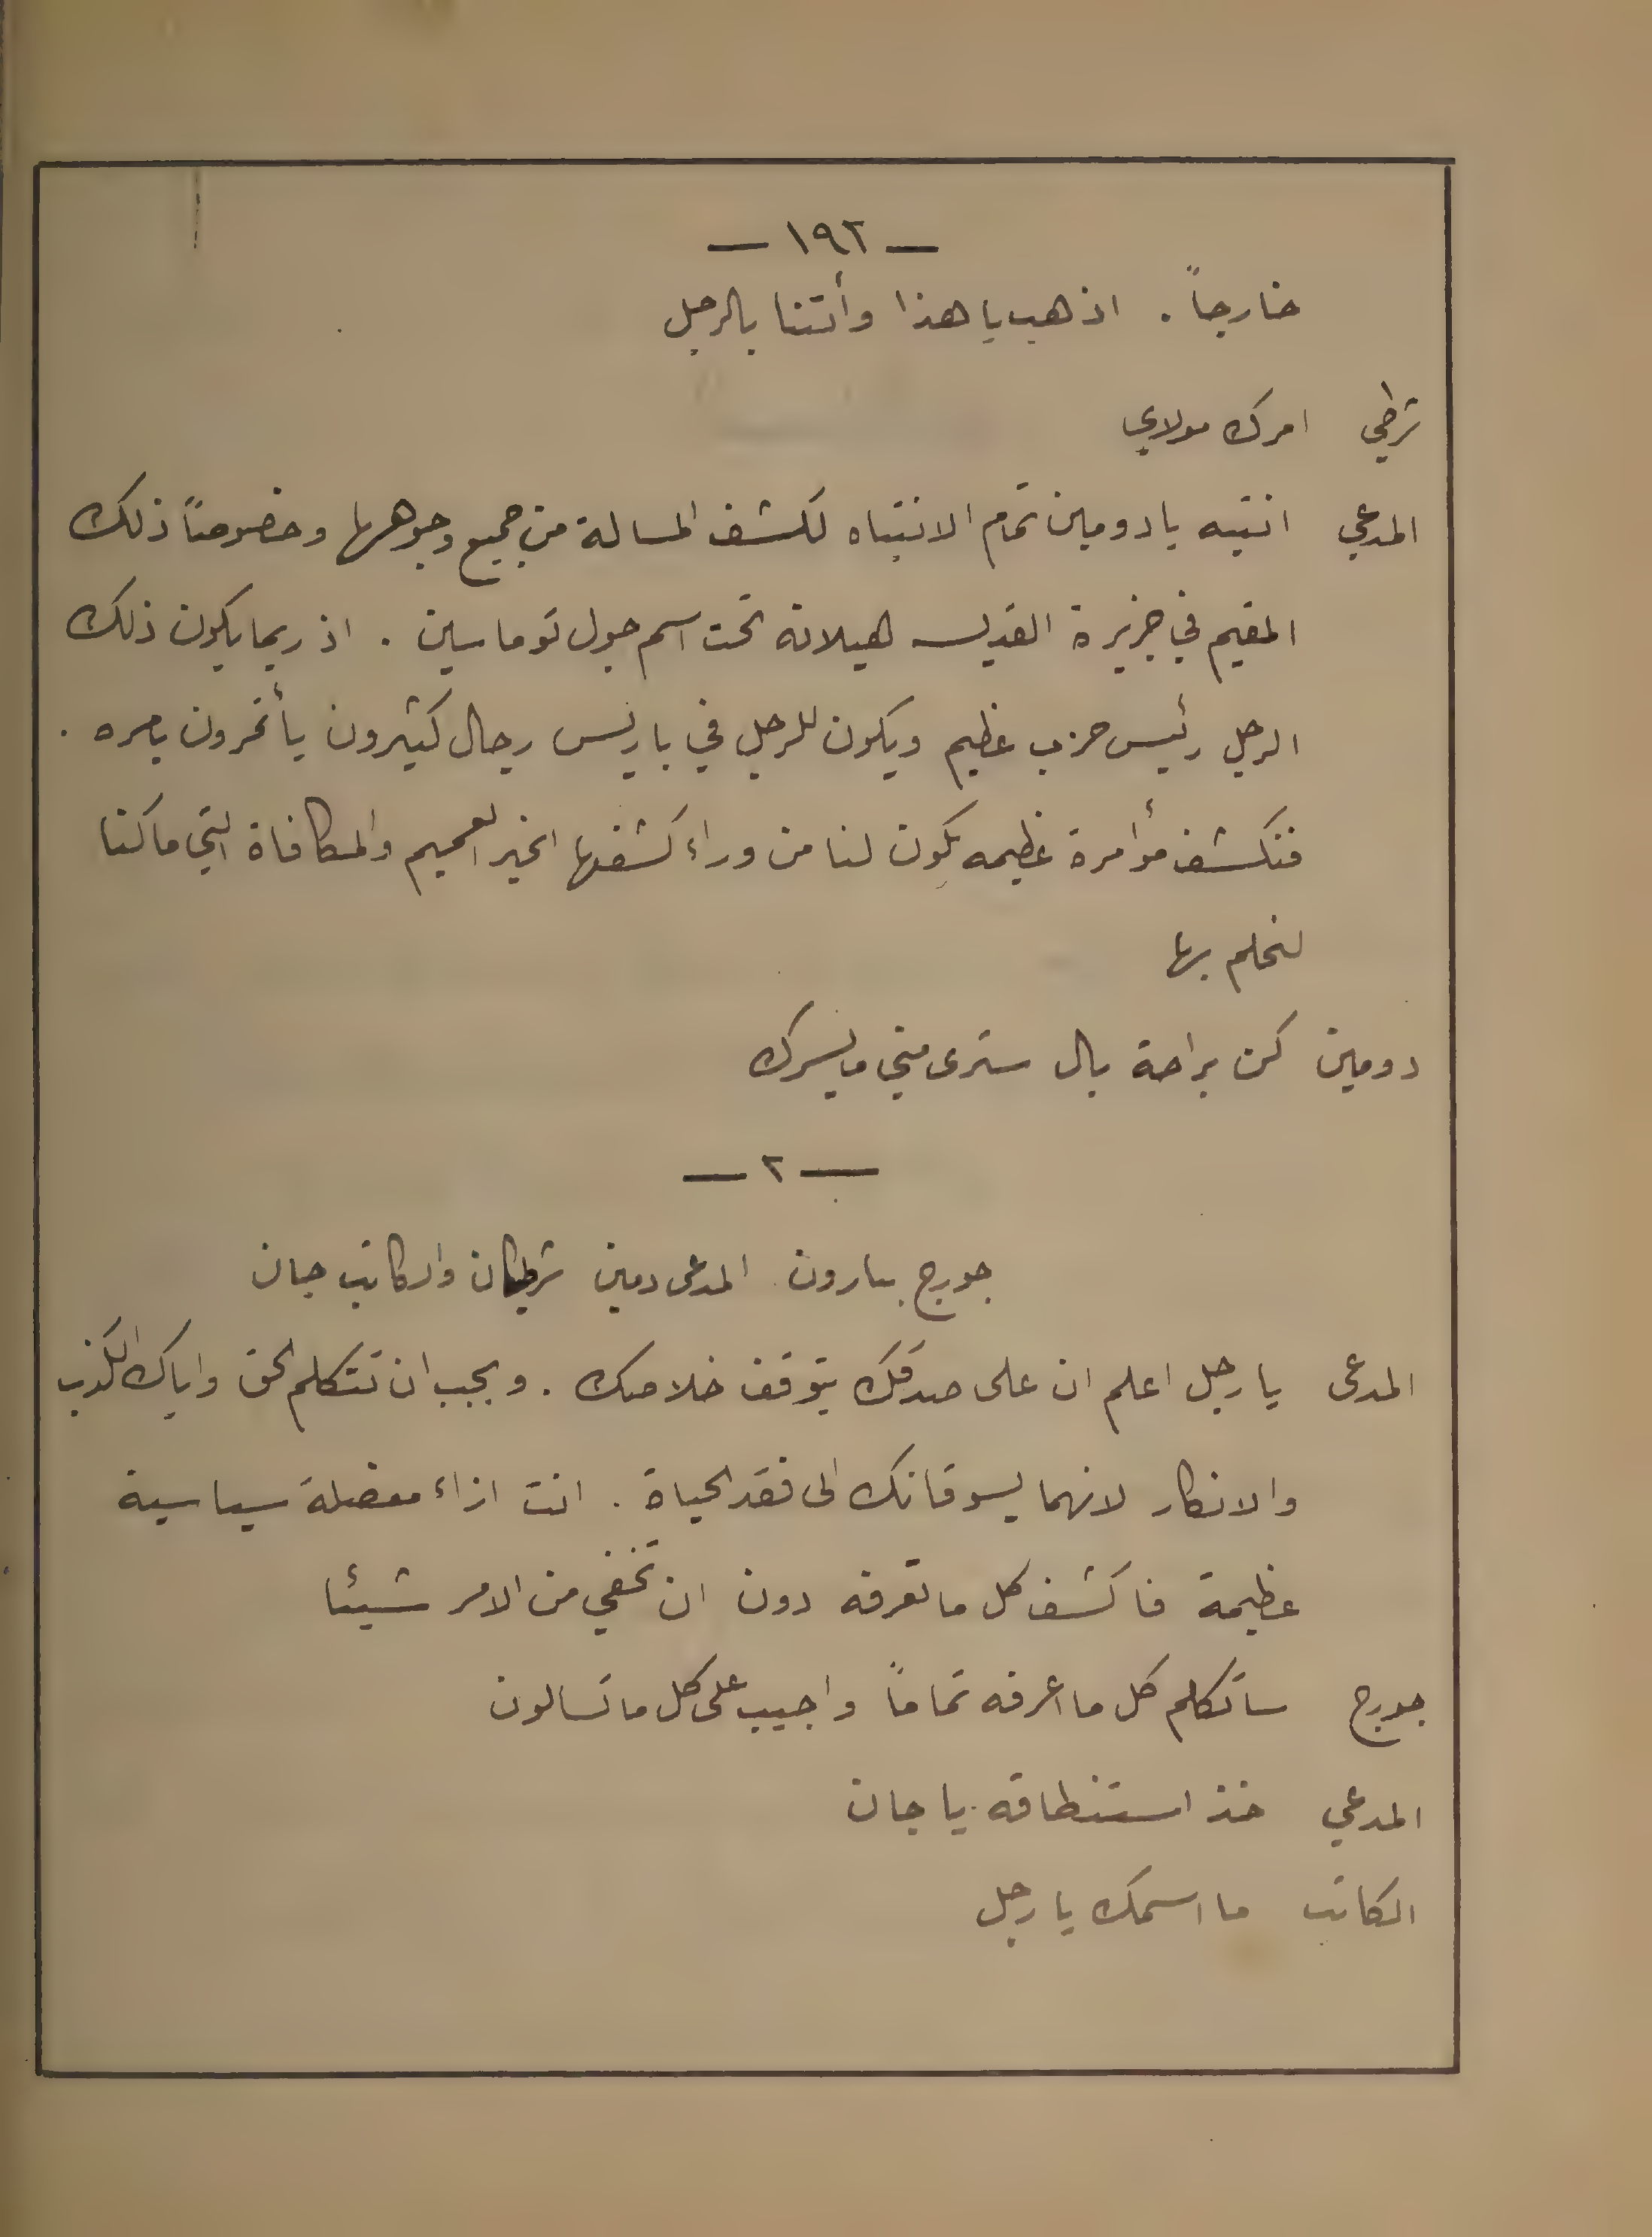 — ١٩٢ —
خارجاً . اذهب يا هذا وأتنا بالرجل
شرطي امرك مولاي
المدعي انتبه يا دومين تمام الانتباه لكشف المسالة من جميع وجوهها وخصوصاً ذلك
المقيم في جزيرة القديسه هيلانة تحت اسم جول توماسين . اذ ربما يكون ذلك
الرجل رئيس حزب عظيم ويكون للرجل في باريس رجال كثيرون يأتمرون بامره .
فنكشف مؤامرة عظيمه يكون لنا من وراء كشفها الخير العميم والمكافاة التي ما كنا
لنحلم بها
دومين كن براحة بال سترى مني ما يسرك
— ٢ —
جورج بيارون المدعى دمين شرطيان والكاتب جان
المدعى يا رجل اعلم ان على صدقك يتوقف خلاصك . ويجب ان تتكلم الحق واياك الكذب
والانكار لانهما يسوقانك الى فقد الحياة . انت ازاء معضلة سياسية
عظيمة فاكشف كل ما تعرفه دون ان تخفي من الامر شيئا
جورج ساتكلم كل ما اعرفه تماماً واجيب على كل ما تسالون
المدعي خذ استنطاقه يا جان
الكاتب ما اسمك يا رجل